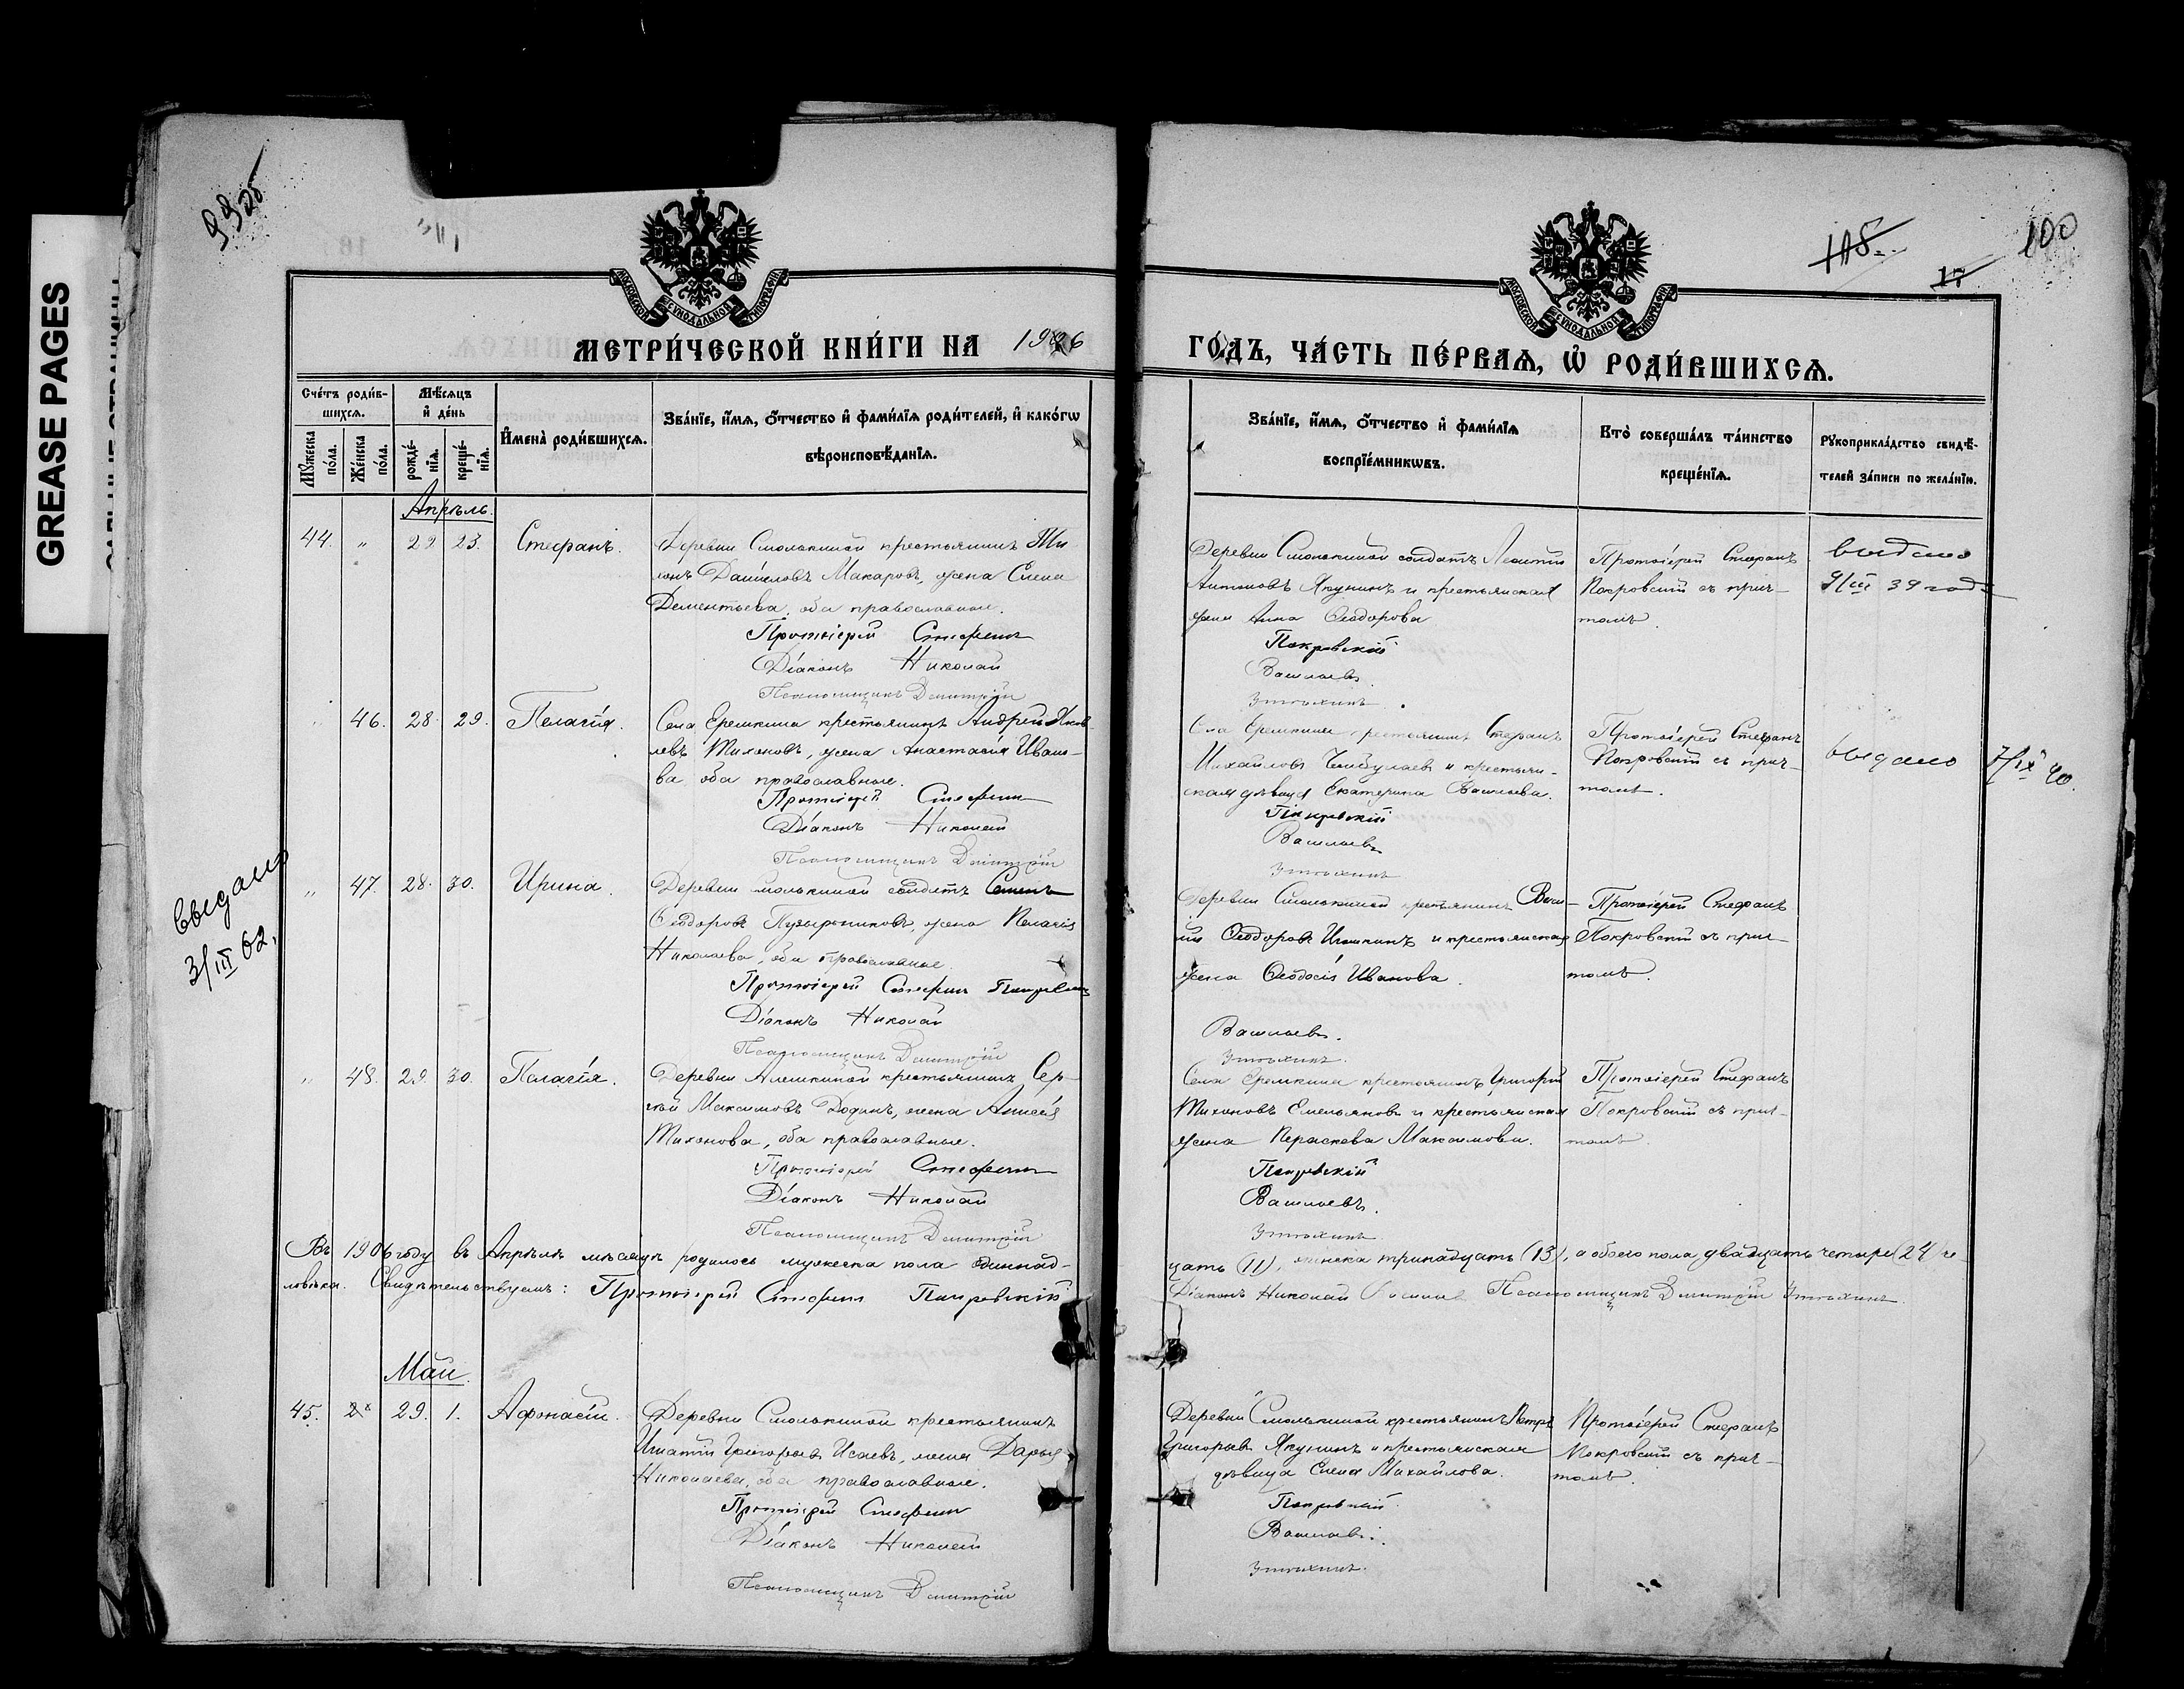 GREASE PAGES
99 об
118.
17
100
МОСКОВСКОЙ СѴНОДАЛЬНОЙ ТИПОГРАФІИ
МОСКОВСКОЙ СѴНОДАЛЬНОЙ ТИПОГРАФІИ
МЕТРИ́ЧЕСКОЙ КНИ́ГИ НА 1906
ГО́ДЪ, ЧА́СТЬ ПЕ́РВАѦ, Ѡ РОДИ́ВШИХСѦ.
Сче́тъ роди́в-
шихсѧ.
Мꙋ́жеска по́ла.
Же́нска по́ла.
Мѣ́сѧцъ и де́нь
рожде́-нїѧ.
креще́-нїѧ.
И҆мена̀ роди́вшихсѧ.
Зва́нїе, и҆́мѧ, ѻ҆́тчество и҆ фами́лїѧ роди́телей, и҆ како́гѡ
вѣроисповѣ́данїѧ.
Зва́нїе, и҆́мѧ, ѻ҆́тчество и҆ фами́лїѧ
воспрїе́мникѡвъ.
Кто̀ соверша́лъ та́инство
креще́нїѧ.
Рꙋкоприкла́дство свидѣ́-
телей за́писи по жела́нїю.
Апрѣль.
44. " 22 23. Стефанъ.
Деревни Смолькиной крестьянинъ Ти-
хонъ Даниловъ Макаровъ, жена Елена
Дементьева, оба православные.
Протоіерей Стефанъ
Діаконъ Николай
Псаломщикъ Димитрій
Деревни Смолькиной солдатъ Леонтій
Антоновъ Якунинъ и крестьянская
жена Анна Ѳеодорова
Покровскій
Васильевъ.
Утѣхинъ.
Протоіерей Стефанъ
Покровскій съ прич-
томъ.
выдано
9/III 39 год
" 46. 28. 29. Пелагія.
Села Еремкина крестьянинъ Андрей Яков-
левъ Тихоновъ, жена Анастасія Ивано-
ва, оба православные.
Протоіерей Стефанъ
Діаконъ Николай
Псаломщикъ Димитрій
Села Еремкина крестьянинъ Стефанъ
Михайловъ и крестьян-
ская дѣвица Екатерина Васильева.
Покровскій
Васильевъ
Утѣхинъ
Протоіерей Стефанъ
Покровскій съ прич-
томъ.
выдано 7/IX 40.
выдано
3/III 62.
" 47. 28. 30. Ирина.
Деревни Смолькиной солдатъ Семенъ
Ѳеодоровъ Пузырниковъ, жена Пелагія
Николаева, оба православные.
Протоіерей Стефанъ Покровскій
Діаконъ Николай
Псаломщикъ Димитрій
Деревни Смолькиной крестьянинъ Васи-
лій Ѳеодоровъ Игошкинъ и крестьянская
жена Ѳеодосія Иванова.
Васильевъ.
Утѣхинъ.
Протоіерей Стефанъ
Покровскій съ прич-
томъ.
" 48. 29. 30. Пелагія.
Деревни Алешкиной крестьянинъ Сер-
гѣй Максимовъ Додинъ, жена Анисія
Тихонова, оба православные.
Протоіерей Стефанъ
Діаконъ Николай
Псаломщикъ Димитрій
Села Еремкина крестьянинъ Григорій
Тихоновъ Емельяновъ и крестьянская
жена Параскева Максимова.
Покровскій
Васильевъ.
Утѣхинъ
Протоіерей Стефанъ
Покровскій съ прич-
томъ.
Въ 1906 году въ Апрѣлѣ мѣсяцѣ родилось мужеска пола одиннад-
цать (11), женска тринадцать (13), а обоего пола двадцать четыре (24) че-
ловѣка. Свидѣтельствуемъ: Протоіерей Стефанъ Покровскій
Діаконъ Николай Васильевъ Псаломщикъ Димитрій Утѣхинъ.
Май.
45. 29. 1. Афонасій.
Деревни Смолькиной крестьянинъ
Игнатій Григорьевъ Исаевъ, жена Дарья
Николаева, оба православные.
Протоіерей Стефанъ
Діаконъ Николай
Псаломщикъ Димитрій
Деревни Смолькиной крестьянинъ Петръ
Григорьевъ Якунинъ и крестьянская
дѣвица Елена Михайлова.
Покровскій
Васильевъ.
Утѣхинъ.
Протоіерей Стефанъ
Покровскій съ прич-
томъ.